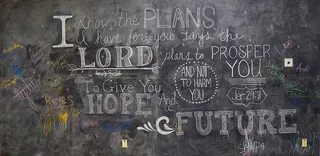 I Know the PLANS
I have for you says the
LORD plans to PROSPER
YOU
AND NOT
TO HARM
YOU
To Give You
HOPE And
a FUTURE
Jer 29:11